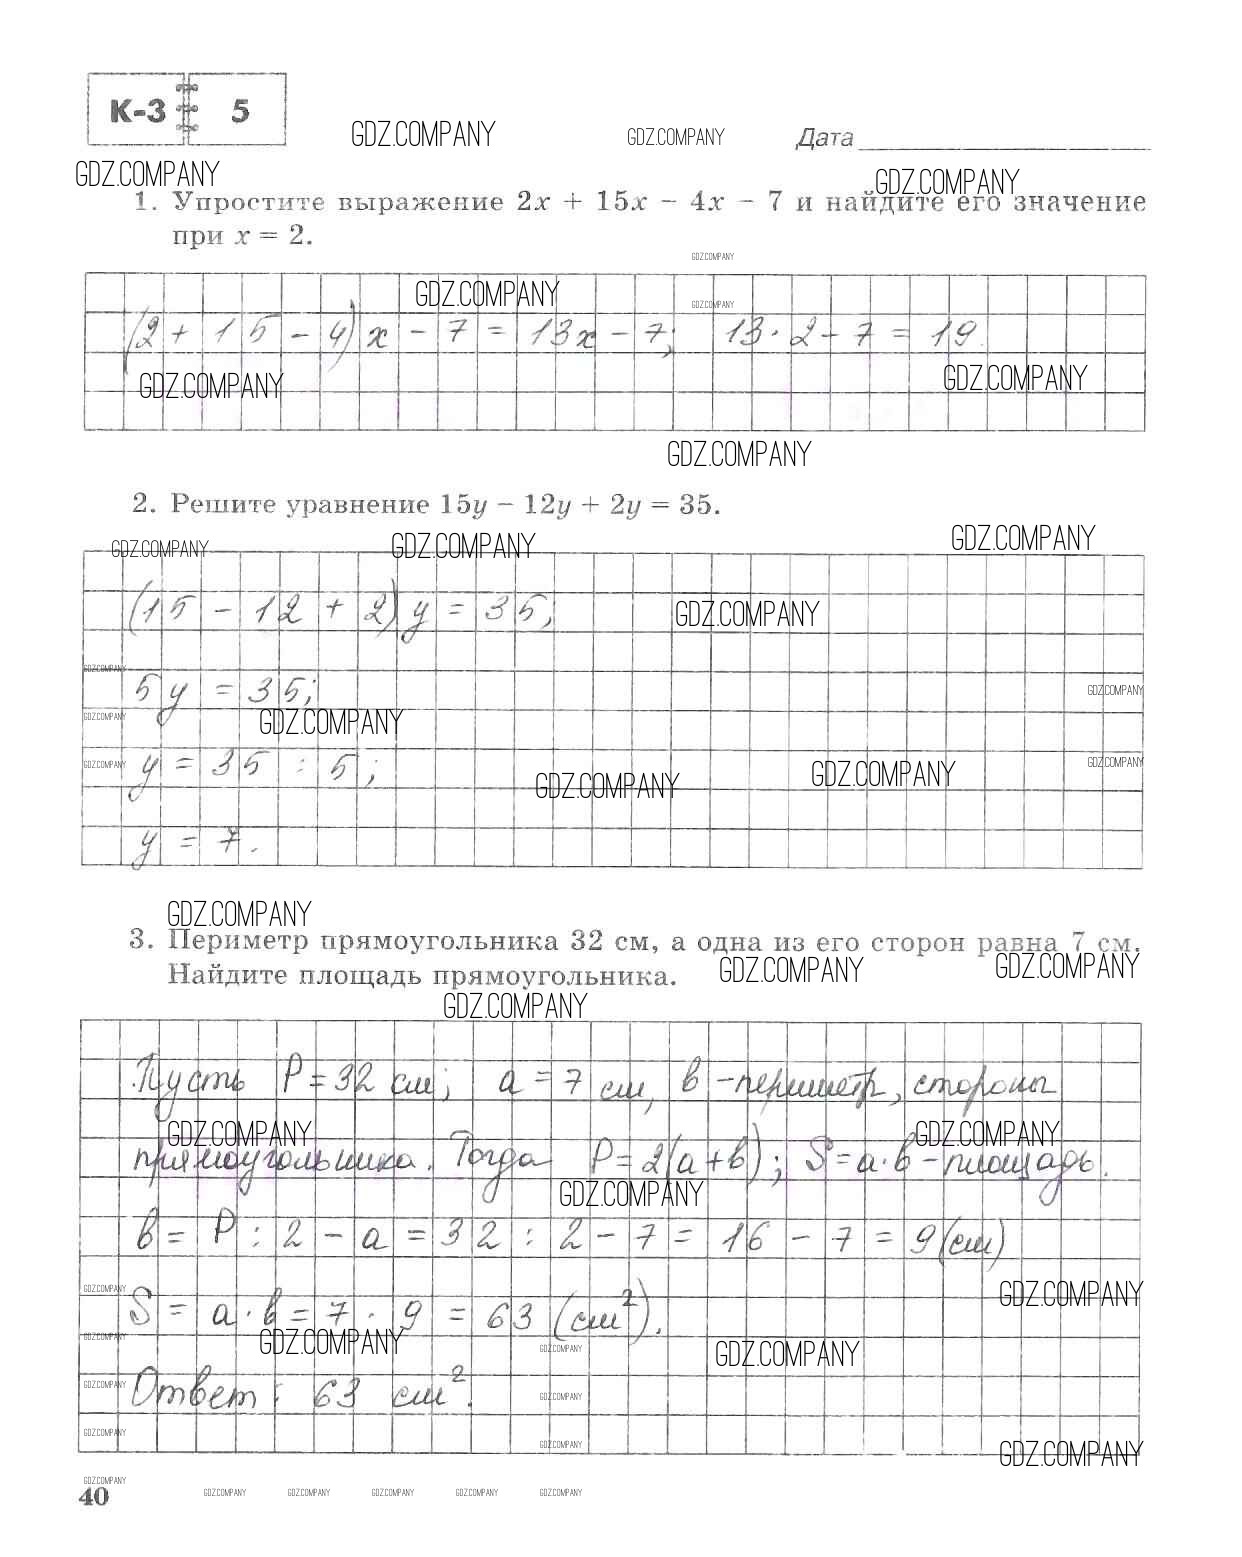 К-3 5
GDZ.COMPANY GDZ.COMPANY Дата
GDZ.COMPANY GDZ.COMPANY
1. Упростите выражение 2x + 15x − 4x − 7 и найдите его значение
при x = 2.
GDZ.COMPANY
GDZ.COMPANY GDZ.COMPANY
(2 + 15 − 4)x − 7 = 13x − 7; 13 · 2 − 7 = 19.
GDZ.COMPANY GDZ.COMPANY
GDZ.COMPANY
2. Решите уравнение 15y − 12y + 2y = 35.
GDZ.COMPANY GDZ.COMPANY GDZ.COMPANY
(15 − 12 + 2)y = 35;
GDZ.COMPANY
GDZ.COMPANY
5y = 35; GDZ.COMPANY
GDZ.COMPANY GDZ.COMPANY
GDZ.COMPANY y = 35 : 5; GDZ.COMPANY
GDZ.COMPANY GDZ.COMPANY
y = 7.
GDZ.COMPANY
3. Периметр прямоугольника 32 см, а одна из его сторон равна 7 см.
Найдите площадь прямоугольника.
GDZ.COMPANY GDZ.COMPANY
GDZ.COMPANY
Пусть P = 32 см; a = 7 см, в - периметр, стороны
GDZ.COMPANY GDZ.COMPANY
прямоугольника. Тогда P = 2(a + в); S = a · в - площадь.
GDZ.COMPANY
в = P : 2 − a = 32 : 2 − 7 = 16 − 7 = 9 (см)
GDZ.COMPANY GDZ.COMPANY
S = a · в = 7 · 9 = 63 (см²).
GDZ.COMPANY GDZ.COMPANY GDZ.COMPANY GDZ.COMPANY
GDZ.COMPANY Ответ: 63 см². GDZ.COMPANY
GDZ.COMPANY GDZ.COMPANY GDZ.COMPANY
GDZ.COMPANY
40 GDZ.COMPANY GDZ.COMPANY GDZ.COMPANY GDZ.COMPANY GDZ.COMPANY